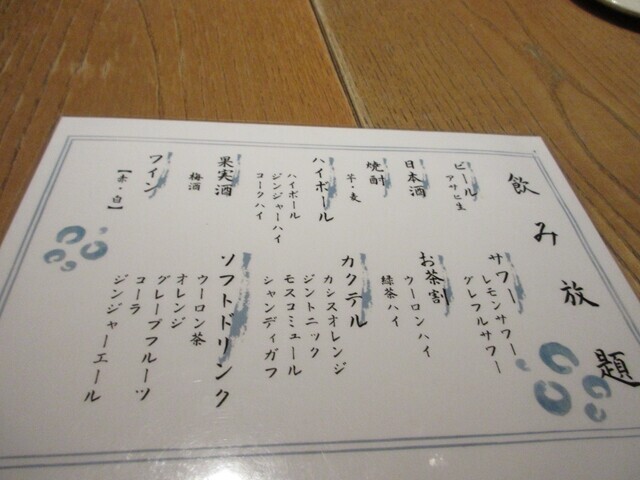 飲み放題
ビール
アサヒ生
日本酒
焼酎
芋・麦
ハイボール
ハイボール
ジンジャーハイ
コークハイ
果実酒
梅酒
ワイン
【赤・白】
サワー
レモンサワー
グレフルサワー
お茶割
ウーロンハイ
緑茶ハイ
カクテル
カシスオレンジ
ジントニック
モスコミュール
シャンディガフ
ソフトドリンク
ウーロン茶
オレンジ
グレープフルーツ
コーラ
ジンジャーエール